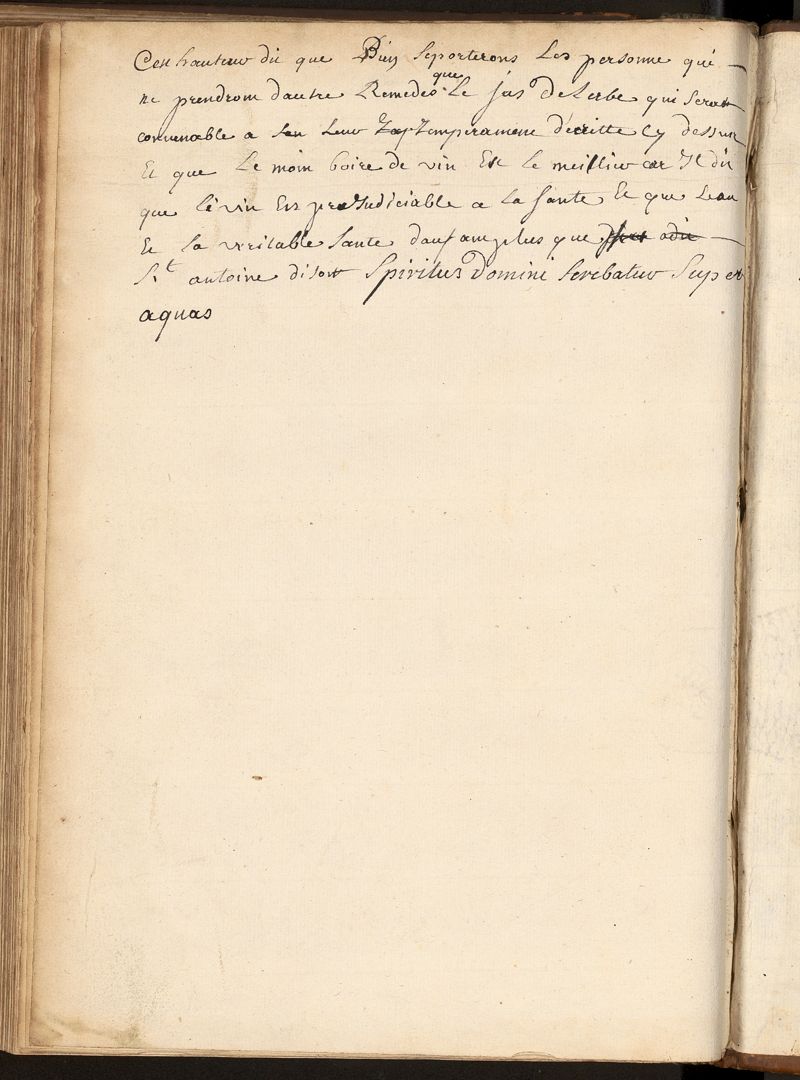 Cest hauteur dit que Bien seporterons Les personne qui —
ne prendrom dautre Remedes que Le jus De Lerbe qui serat
convenable a son Leur Temperament décritte Cy dessus
Et que Le moin boire de vin Est le meillieur car Il dit
que le vin Est preJudiciable a La santé Et que Leau
Et La veritable santé dautamplus que odit —
St antoine disoit Spiritus Domini ferebatur Super
aquas